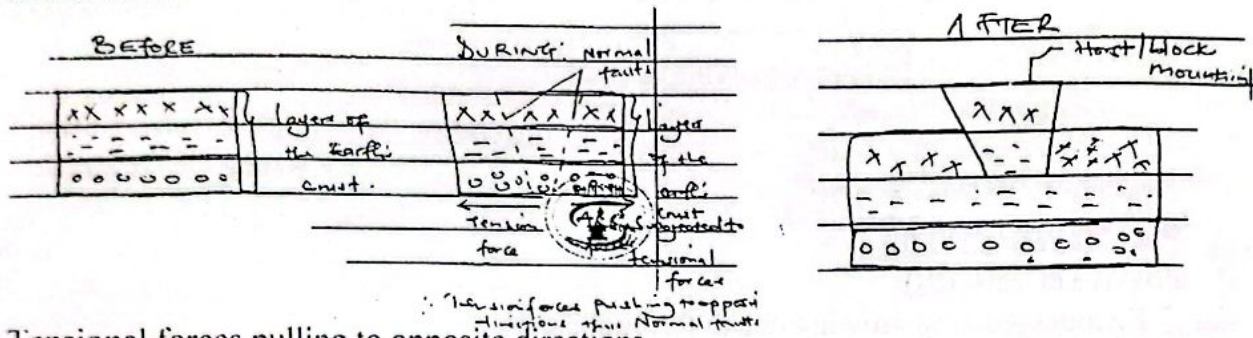 BEFORE
layers of
the Earth's
crust.
DURING: Normal
faults
layers
of the
earth's
crust
Tension
force
subjected to
tensional
forces
Tension forces pushing to
directions thus Normal
AFTER
Horst/block
mountain
Tensional forces pulling to opposite directions